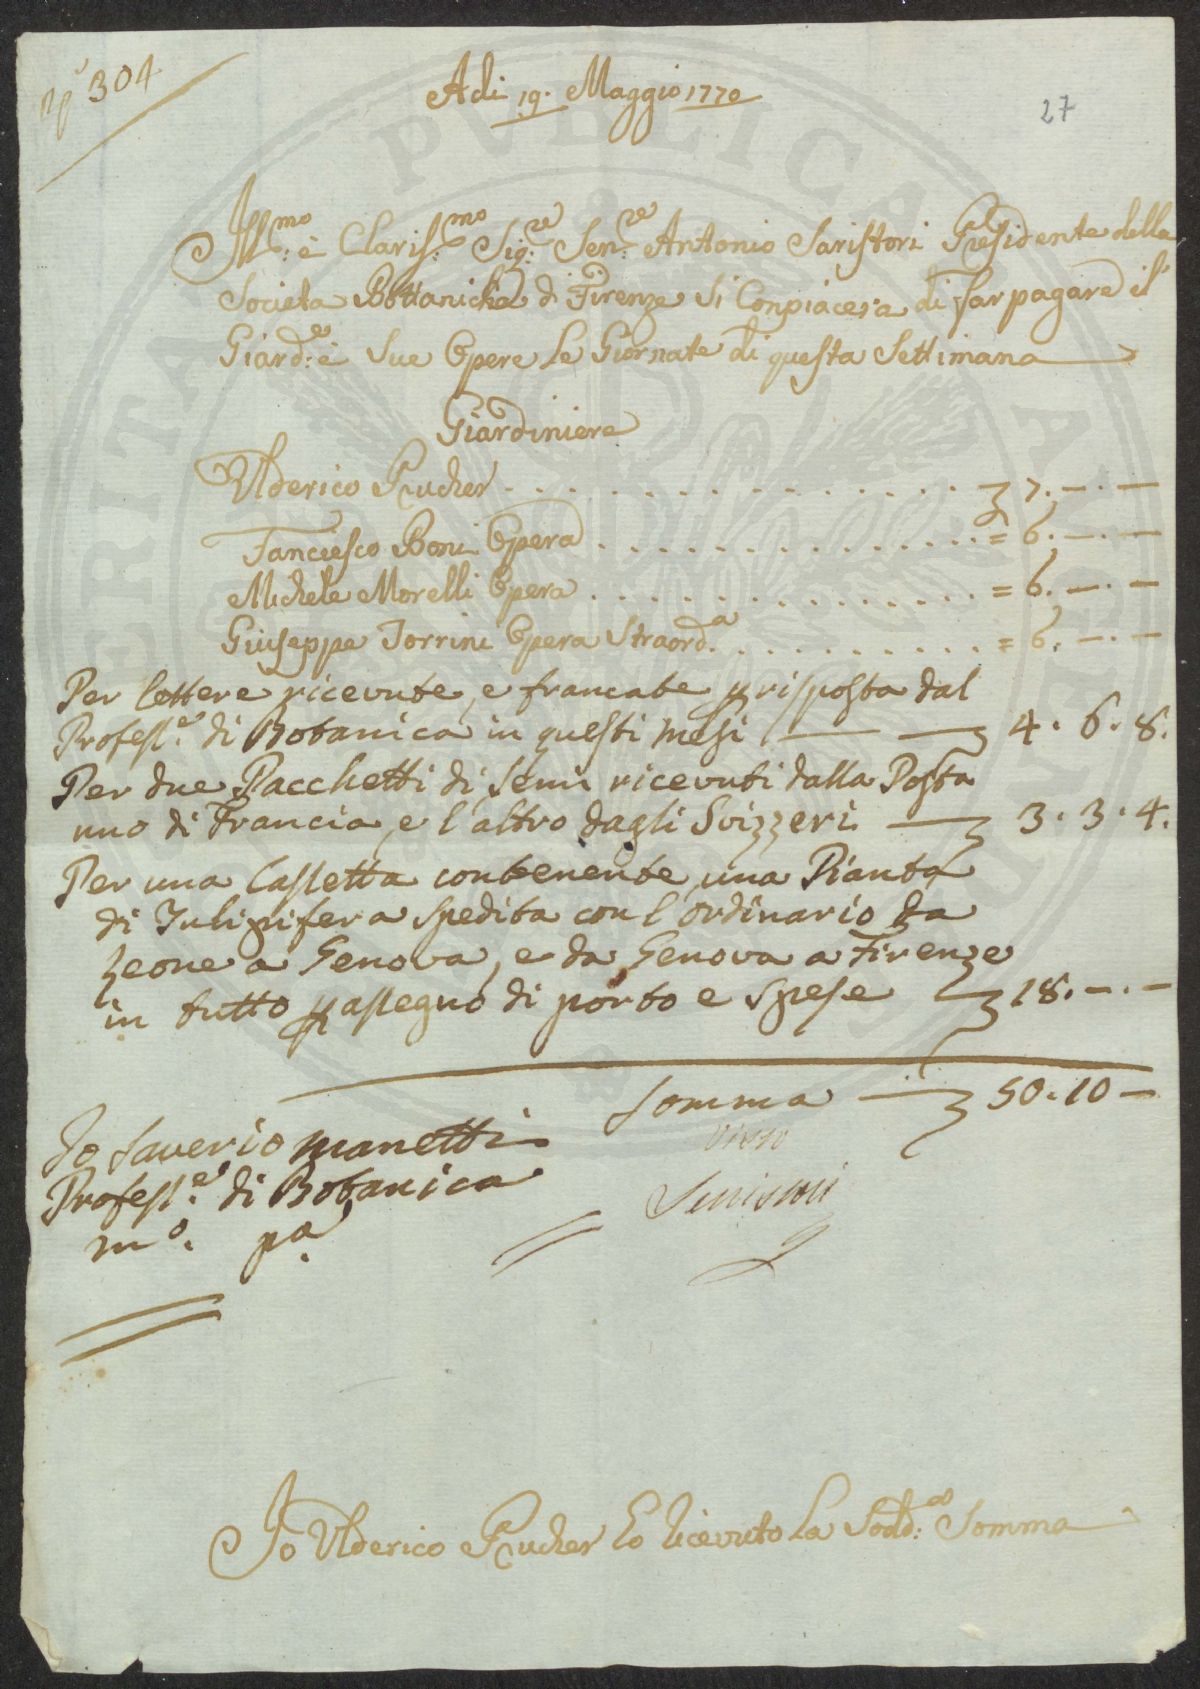 N° 304
Adi 19. Maggio 1770
27
Ill.mo è Claris.mo Sig.re Sen.re Antonio Saristori Presidente della
Societa Bottanicha di Firenze Si Conpiacera di far pagare il
Giard.e è Sue Opere Le Giornate di questa Settimana
Giardiniere
Ulderico Prucher . . . . . . . . . . . . . . . . 7. — . —
Francesco Boni Opera . . . . . . . . . . . . . = 6. — . —
Michele Morelli Opera . . . . . . . . . . . . . = 6. — . —
Giuseppe Torrini Opera Straord.a . . . . . . . . . = 6. — . —
Per lettere ricevute, e francate p risposta dal
Profess.e di Botanica in questi mesi — — 4. 6. 8.
Per due Pacchetti di semi ricevuti dalla Posta
uno di Francia, e l'altro dagli Svizzeri — 3. 3. 4.
Per una Cassetta contenente una Pianta
di Tulipifera spedita con l'ordinario da
Leone a Genova, e da Genova a Firenze
in tutto p assegno di porto e spese 18. — . —
Somma — 50. 10 —
Io Saverio Manetti
Profess.e di Botanica
m.o p.a
Visto
Io Ulderico Prucher Ho Ricevuto La Sodd.a Somma
PVBLICA